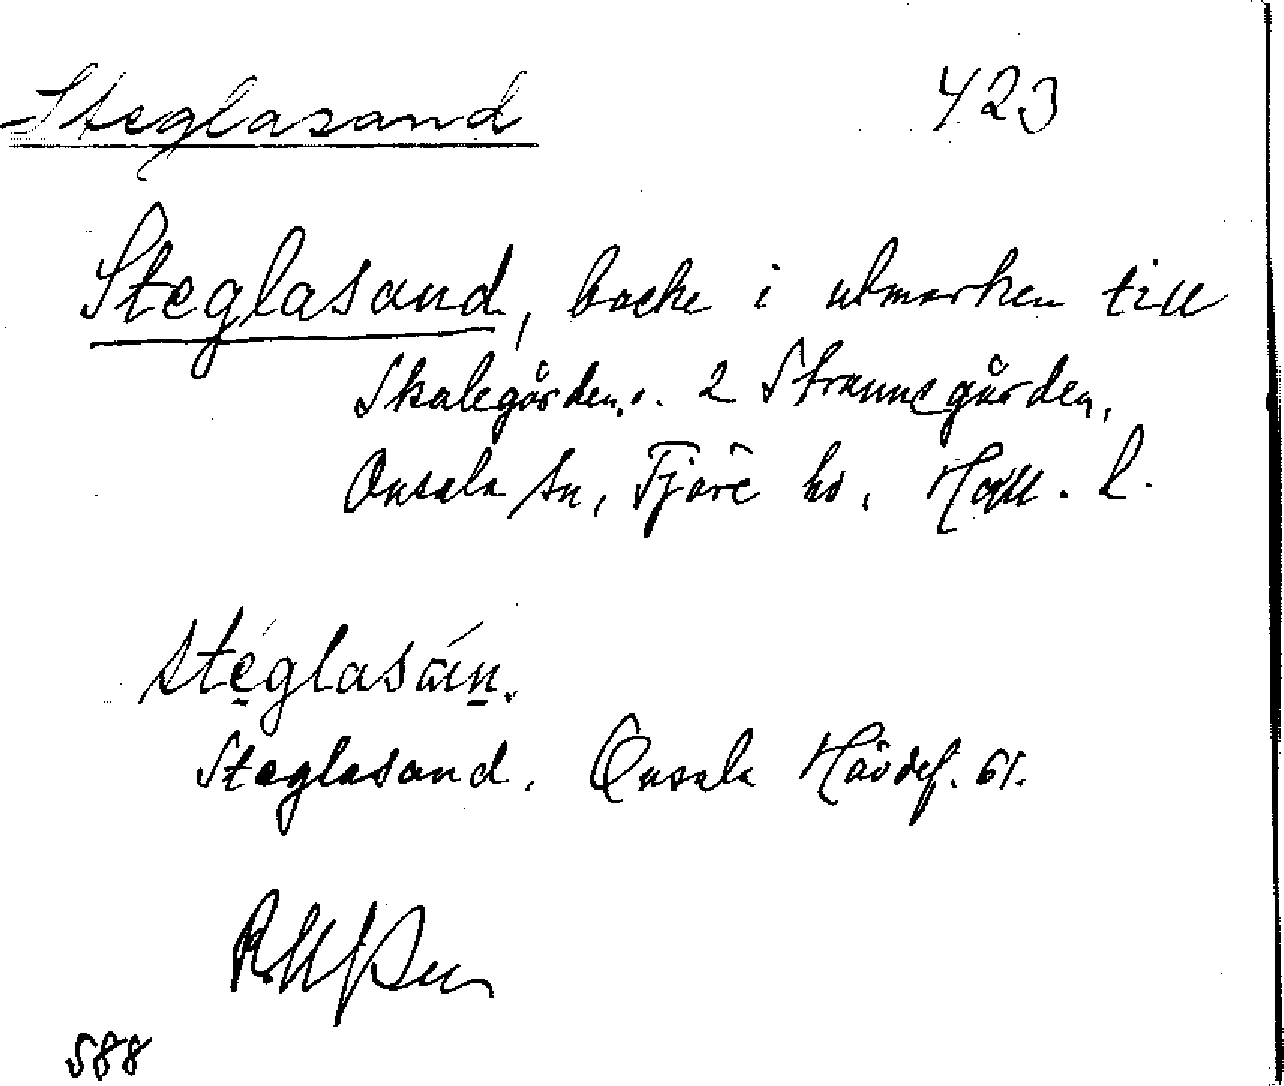 Steglasand 423
Steglasand, backe i utmarken till
Skalegården o. 2 Strannegården,
Onsala sn, Fjäre hd, Hall. l.
stéglasán.
Steglasand. Onsala Hävdef. 61.
588